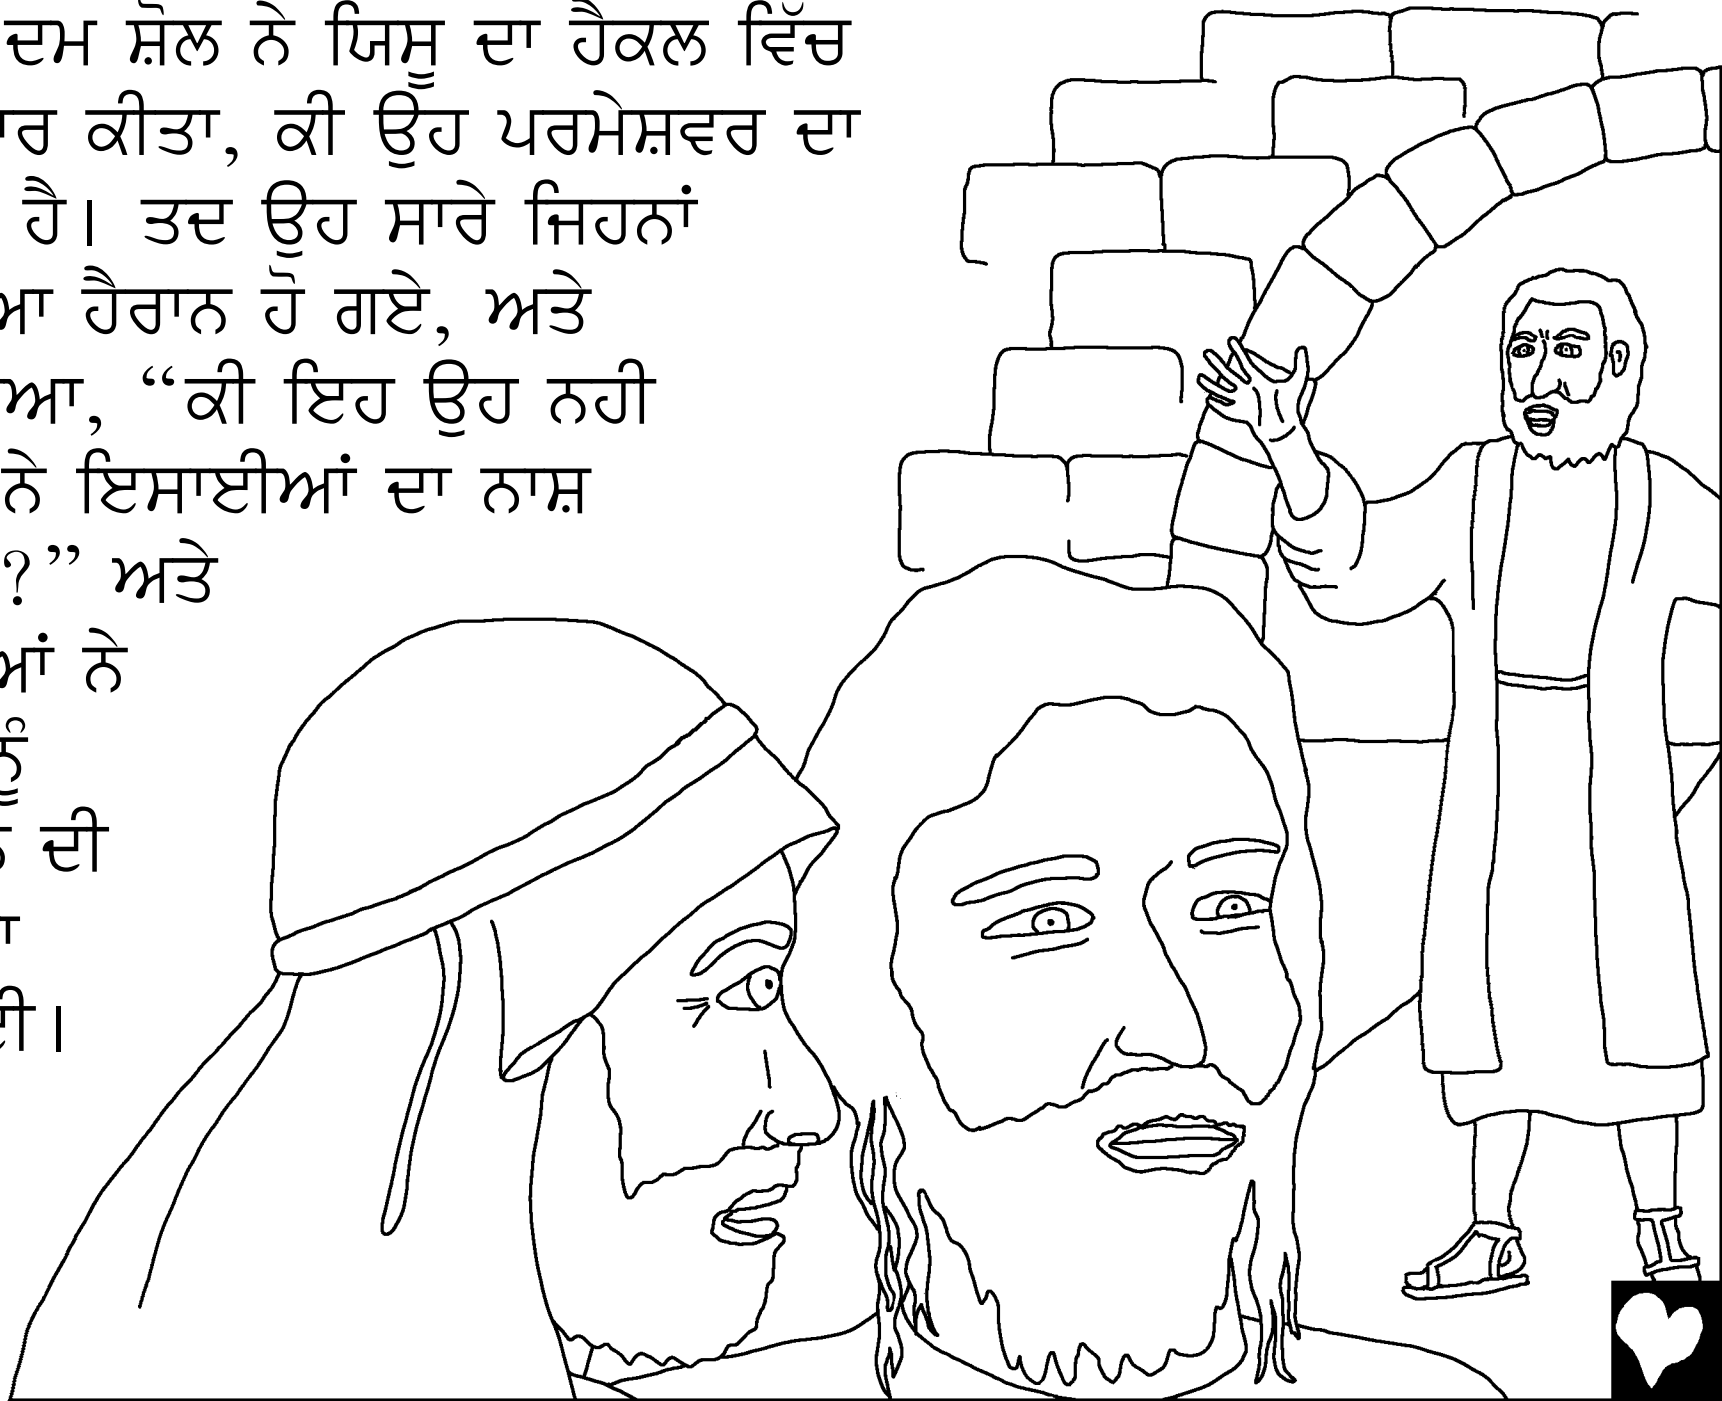 ਦਮ ਸ਼ੋਲ ਨੇ ਯਿਸੂ ਦਾ ਹੈਕਲ ਵਿੱਚ
ਾਰ ਕੀਤਾ, ਕੀ ਉਹ ਪਰਮੇਸ਼ਵਰ ਦਾ
ਹੈ। ਤਦ ਉਹ ਸਾਰੇ ਜਿਹਨਾਂ
ਆ ਹੈਰਾਨ ਹੋ ਗਏ, ਅਤੇ
ਆ, “ਕੀ ਇਹ ਉਹ ਨਹੀ
ਨੇ ਇਸਾਈਆਂ ਦਾ ਨਾਸ਼
?” ਅਤੇ
ਆਂ ਨੇ
ਨੂੰ
ਦੀ
ਾ
ਈ।